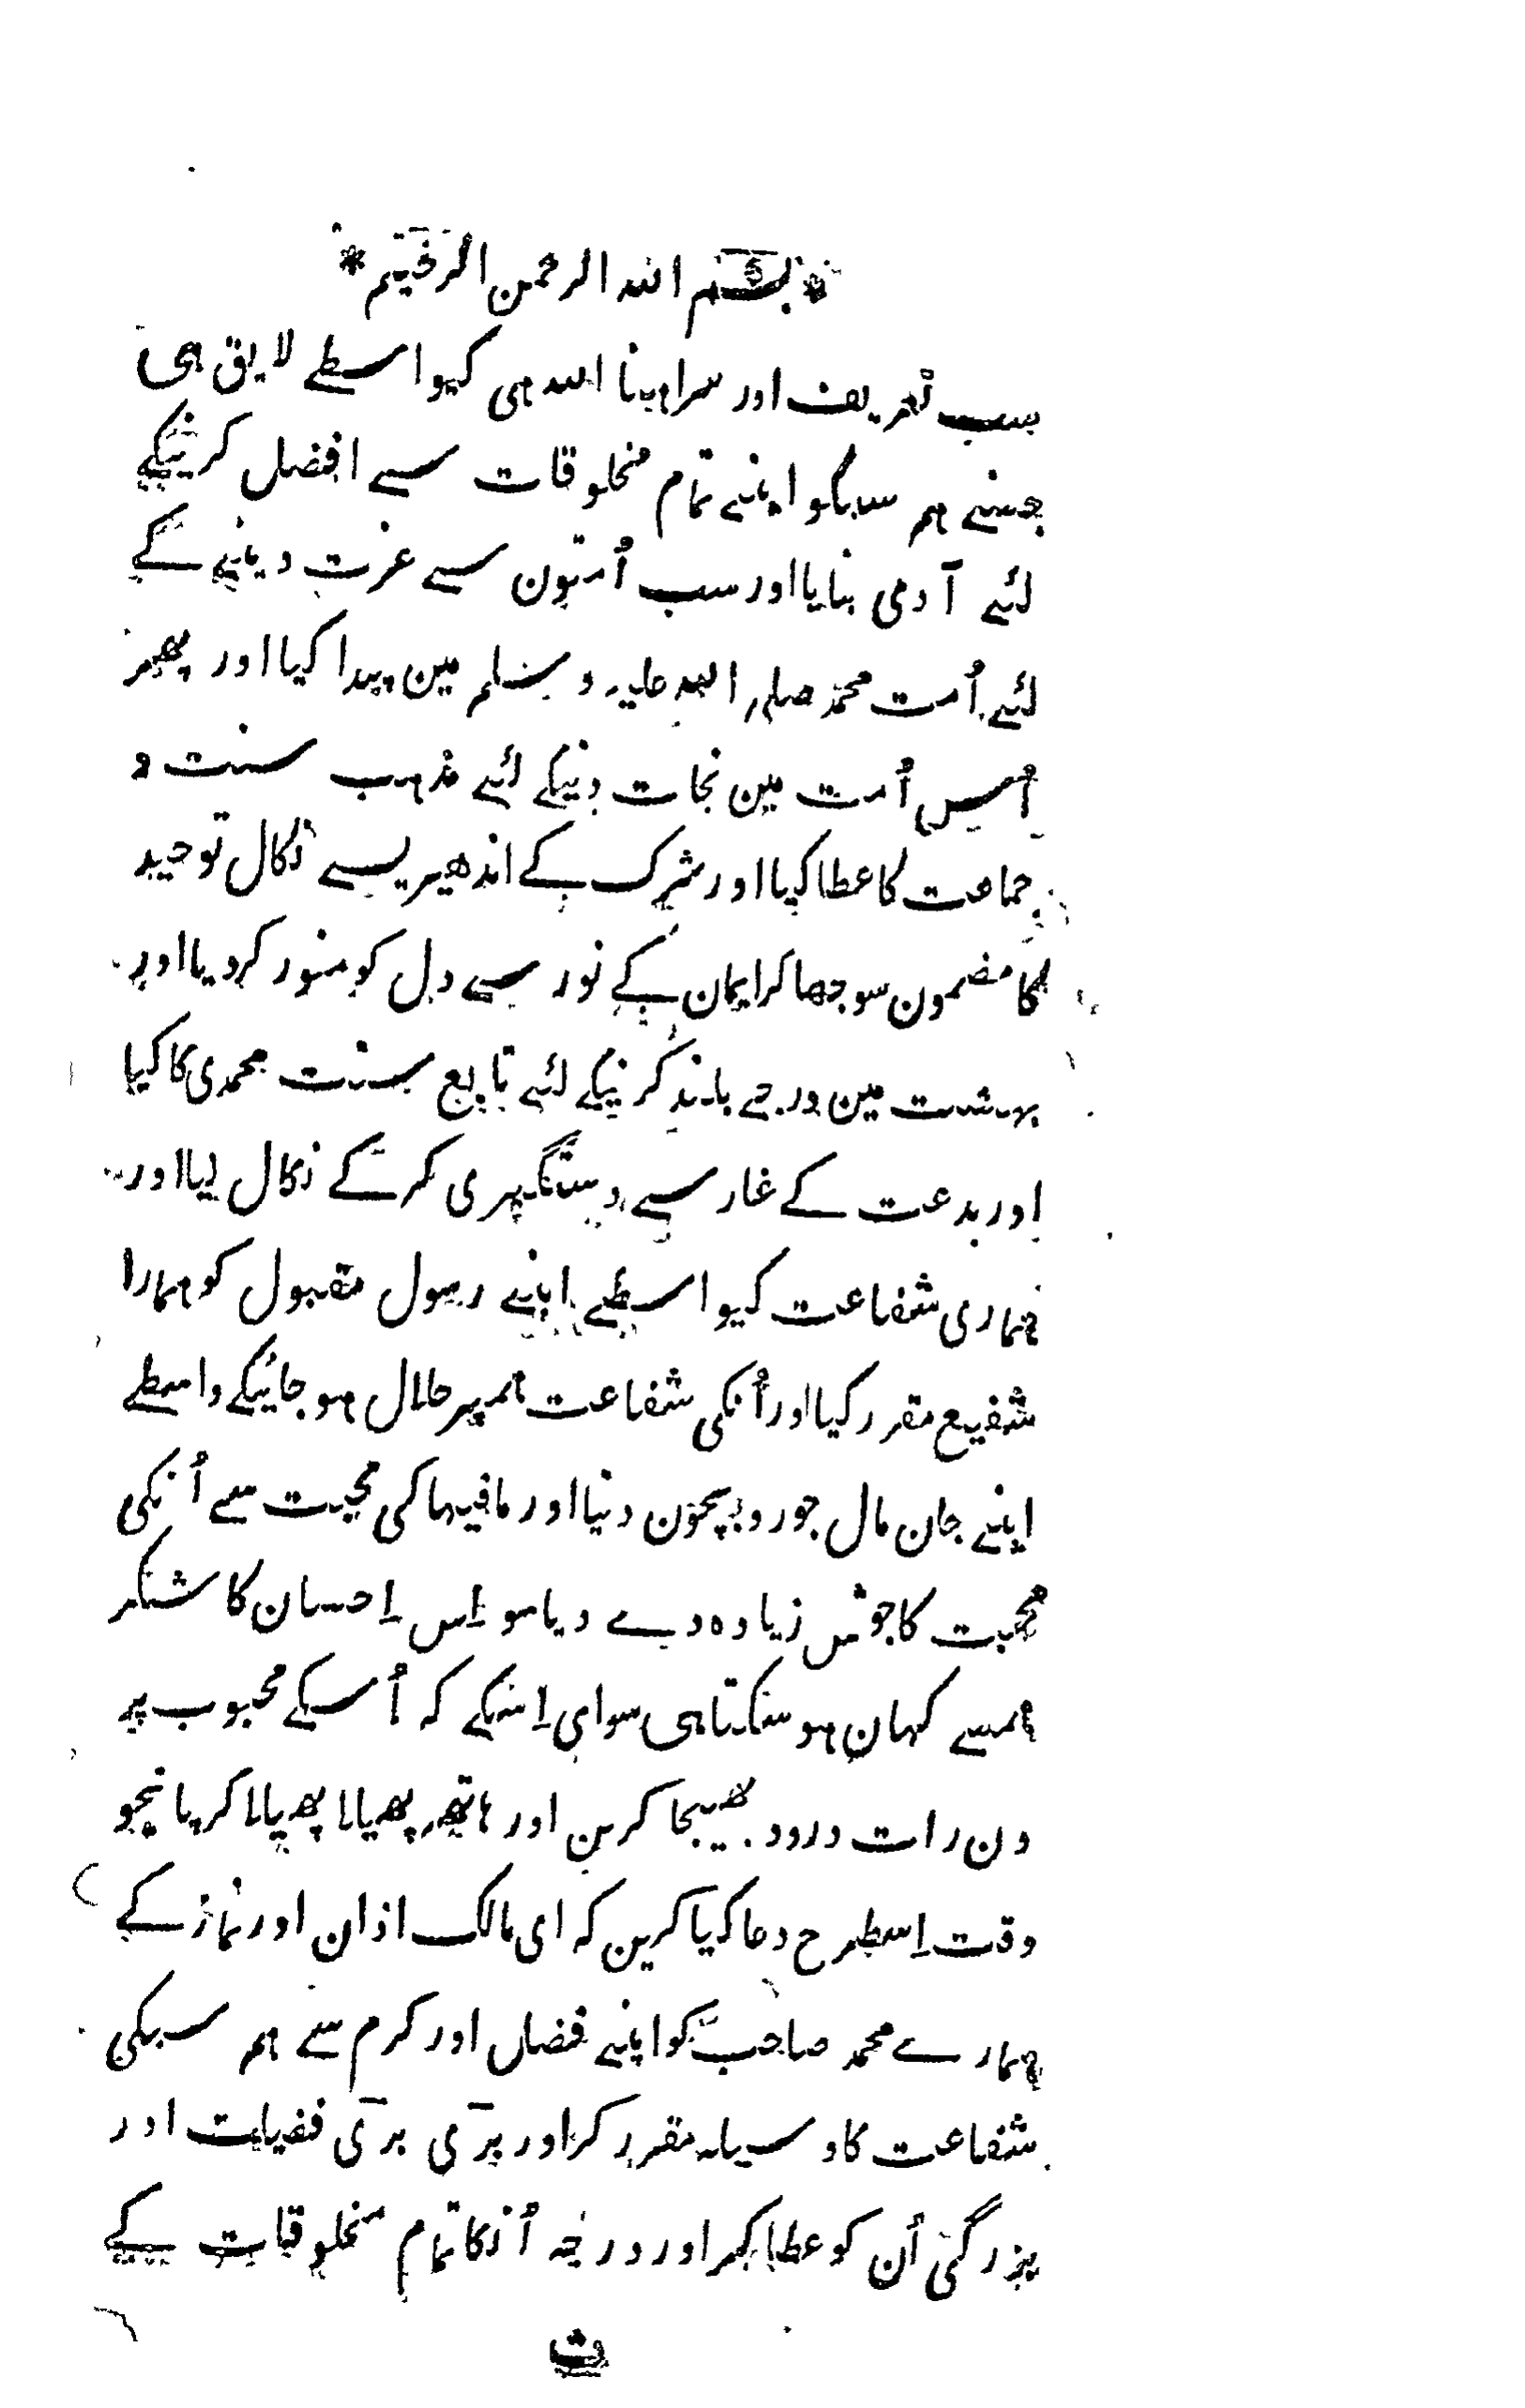 * بسم الله الرحمن الرحیم *
سب تعریف اور سراہنا اللہ ہی کیواسطے لایق ہی
جسنے ہم سبکو اپنے تمام مخلوقات سے افضل کرنیکے
لئے آدمی بنایا اور سب اُمتون سے عزت دینے کے
لئے اُمت محمد صلی اللہ علیہ وسلم مین پیدا کیا اور پھر
اُس اُمت مین نجات دینیکے لئے مذہب سنت و
جماعت کا عطا کیا اور شرک کے اندھیریسے نکال توحید
کا مضمون سوجھا کر ایمان کے نور سے دل کو منور کردیا اور
بہشت مین درجے بلند کرنیکے لئے تابع سنت محمدی کا کیا
اور بدعت کے غار سے دستگیری کرکے نکال لیا اور
ہماری شفاعت کیواسطے اپنے رسول مقبول کو ہمارا
شفیع مقرر کیا اور اُنکی شفاعت ہمپر حلال ہو جانیکے واسطے
اپنے جان مال جورو بچون دنیا اور مافیہا کی محبت سے اُنکی
محبت کا جوش زیادہ دے دیا سو اِس اِحسان کا شکر
ہمسے کہان ہو سکتا ہی سوای اِسکے کہ اُسکے محبوب پر
دن رات درود بھیجا کرین اور ہاتھ پھیلا پھیلا کر پانچو
وقت اِسطرح دعا کیا کرین کہ ای مالک اذان اور نماز کے
ہمارے محمد صاحب کو اپنے فضل اور کرم سے ہم سبکی
شفاعت کا وسیلہ مقرر کر اور بڑی بڑی فضیلت اور
بزرگی اُن کو عطا کر اور درجہ اُنکا تمام مخلوقات کے